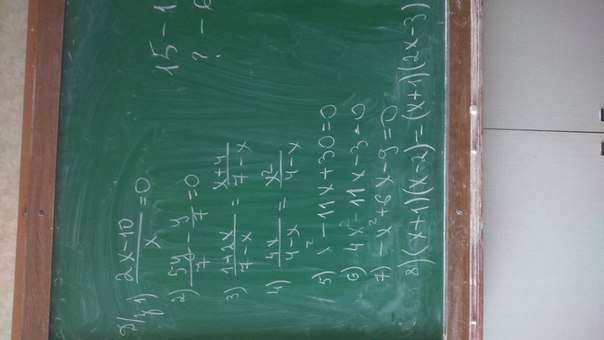 д/з 1) (2x-10)/x = 0
2) 5y/7 - y/7 = 0
3) (1+2x)/(7-x) = (x+4)/(7-x)
4) 4x/(4-x) = x²/(4-x)
5) x² - 11x + 30 = 0
6) 4x² - 11x - 3 = 0
7) -x² + 6x - 9 = 0
8) (x+1)(x-2) = (x+1)(2x-3)
15 - 1
? -